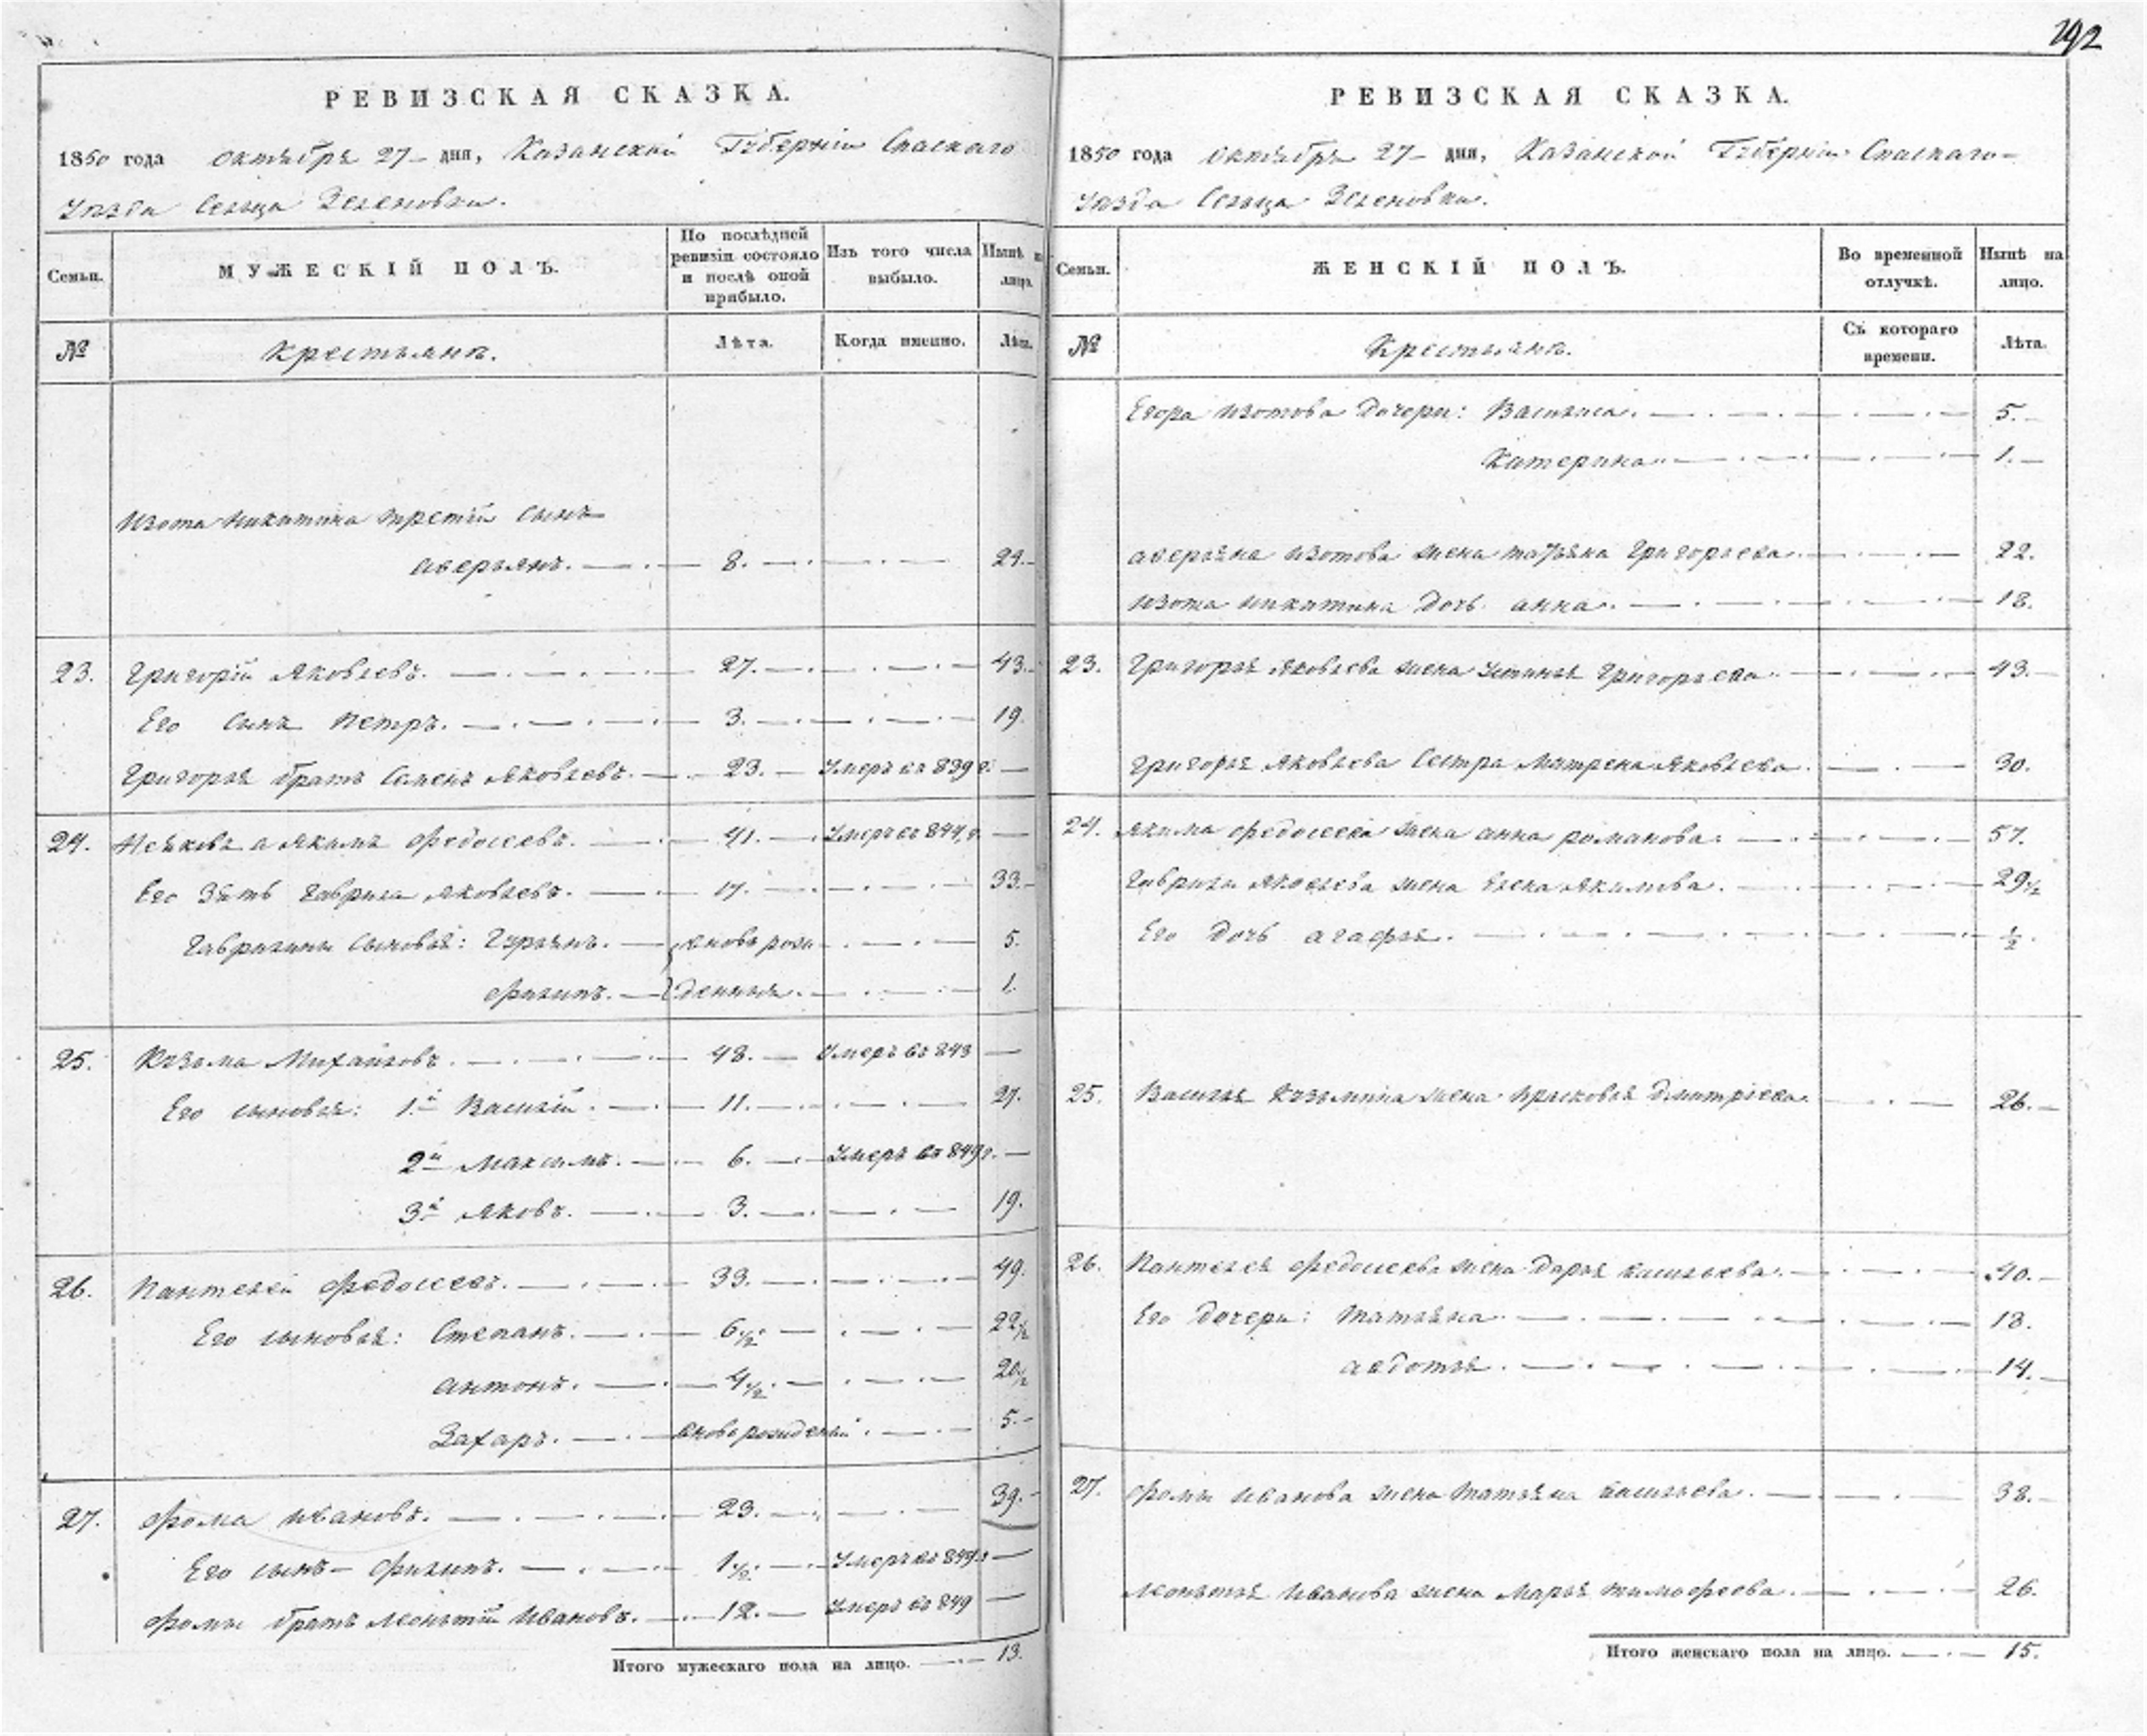 292
РЕВИЗСКАЯ СКАЗКА.
1850 года октября 27 – дня, Казанской Губерніи Спаскаго
уѣзда Сельца Зеленовки.
Семьи. МУЖЕСКІЙ ПОЛЪ. По послѣдней ревизіи состояло и послѣ оной прибыло. Изъ того числа выбыло. Нынѣ на лицо.
№ Крестьянъ. Лѣта. Когда именно. Лѣта.
Изота Никитина третій сынъ
аверьянъ. 8. 24.
23. Григорій Яковлевъ. 27. 43.
Его сынъ Петръ. 3. 19.
Григорья братъ Семенъ Яковлевъ. 23. Умеръ въ 839 г.
24. Якимъ Федосеевъ. 41. Умеръ въ 844 г.
Его Зять Гаврила Яковлевъ. 17. 33.
Гаврилины сыновья: Гурьянъ. вновь рож- 5.
Филипъ. денныя. 1.
25. Кузьма Михайловъ. 48. Умеръ въ 843
Его сыновья: 1й Василій. 11. 27.
2й Максимъ. 6. Умеръ въ 849 г.
3й Яковъ. 3. 19.
26. Пантелей Федосеевъ. 33. 49.
Его сыновья: Степанъ. 6 1/2. 22 1/2
антонъ. 4 1/2. 20 1/2
Захаръ. вновь рожденный. 5.
27. Фома Ивановъ. 23. 39.
Его сынъ – Филипъ. 1 1/2. Умеръ въ
Фомы братъ Леонътій Ивановъ. 12. Умеръ въ 849
Итого мужескаго пола на лицо. 13.
РЕВИЗСКАЯ СКАЗКА.
1850 года октября 27 – дня, Казанской Губерніи Спаскаго
уѣзда Сельца Зеленовки.
Семьи. ЖЕНСКІЙ ПОЛЪ. Во временной отлучкѣ. Нынѣ на лицо.
№ Крестьянъ. Съ котораго времени. Лѣта.
Егора Изотова Дочери: Василиса. 5.
Катерина. 1.
аверьяна Изотова жена татьяна Григорьева. 22.
Изота Никитина Дочь анна. 18.
23. Григорья Яковлева жена Устинья Григорьева. 43.
Григорья Яковлева Сестра Матрена Яковлева. 30.
24. Якима Федосеева жена анна романова. 57.
Гаврилы Яковлева жена Елена Якимова. 29 1/2
Его Дочь агафья. 1/2.
25. Василья Кузьмина жена Прасковья Дмитріева. 26.
26. Пантелея Федосеева жена Дарья васильева. 40.
Его Дочери: Татьяна. 18.
авдотья. 14.
27. Фомы Иванова жена Татьяна васильева. 38.
Леонътья Иванова жена Марья тимофеева. 26.
Итого женскаго пола на лицо. 15.